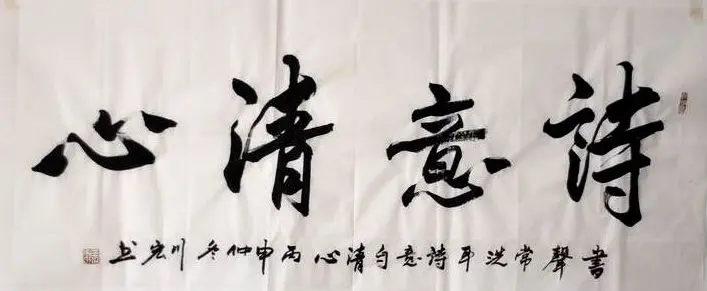 詩意清心
書聲常洗耳詩意自清心丙申仲冬川宏书